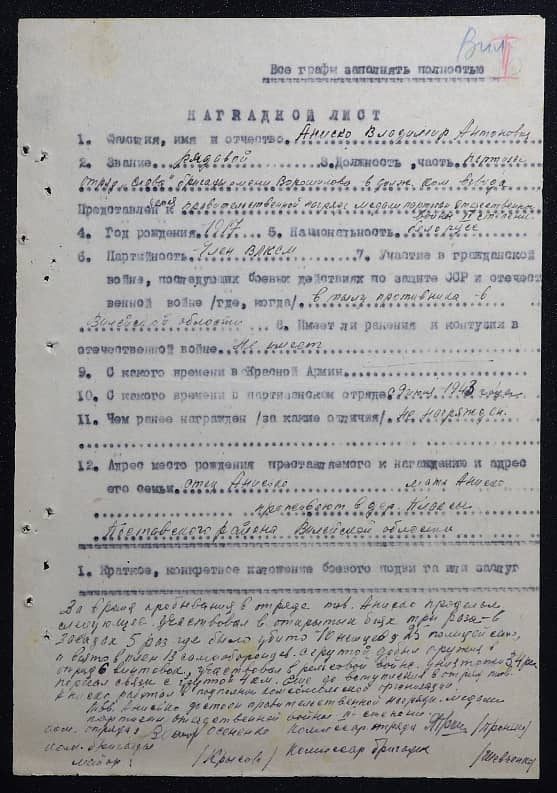 Все графы заполнять полностью
НАГРАДНОЙ ЛИСТ
1. Фамилия, имя и отчество. Аниско Владимир Антонович
2. Звание. рядовой 3.Должность ,часть.
отряд „Слава" бригады имени Ворошилова в долж. ком. взвода
Представлен к правительственной награде медали партизан отечественной
войны II степени
4. Год рождения 1917 5. Национальность. белорус
6. Партийность. Член ВЛКСМ 7. Участие в гражданской
войне, последующих боевых действиях по защите ССР и отечест
венной войне /где, когда/. в тылу противника в
Вилейской области 8. Имеет ли ранения и контузии в
отечественной войне. Не имеет
9. С какого времени в Красной Армии
10. С какого времени в партизанском отряде 1943 года
11. Чем ранее награжден /за какие отличия/. Не награжден.
12. Адрес место рождения преставляемого к нагаждению и адрес
его семьи. отец Аниско мать Аниско
проживают в дер.
Поставского района Вилейской области
1. Краткое, конкретное изложение боевого подви га или заслуг
За время пребывания в отряде тов. Аниско проделал
следующее. Участвовал в открытых боях три раза в
засадах 5 раз где было убито 10 немцев и
и взято в плен 13 самооборонцев.
отряд 6 винтовок, участвовал в рельсовой войне.
связи Еще до вступления в отряд тов.
Аниско работал в подпольн комсомольской организации.
Тов. Аниско достоин правительственной награды медали
партизан отечественной войны II степени.
ком. отряда Осененко Комиссар отряда /Пронин/
ком. бригады
майор: /Крысов/ Комиссар бригады /Шевченко/